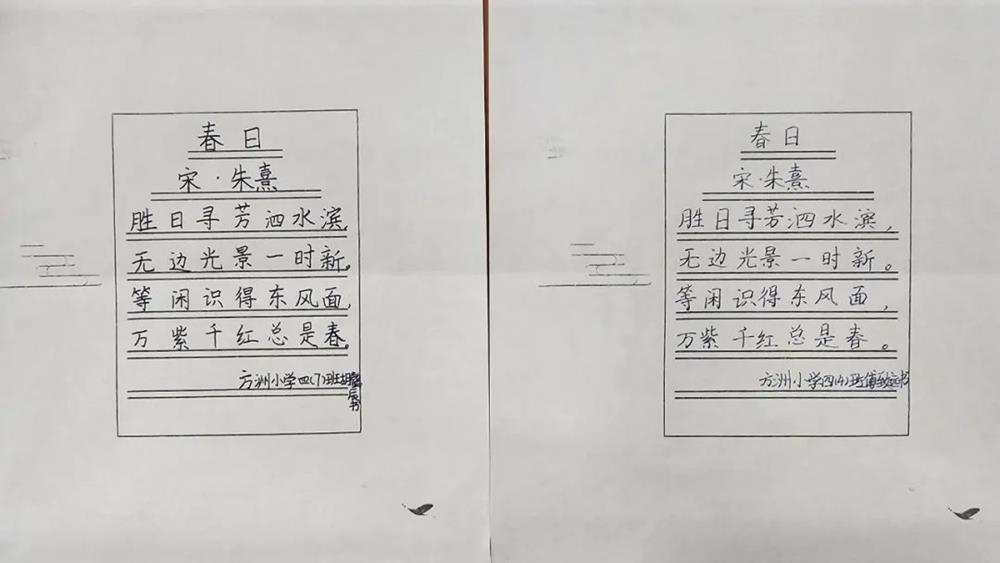 春日
宋·朱熹
胜日寻芳泗水滨,
无边光景一时新。
等闲识得东风面,
万紫千红总是春。
方洲小学四(7)班胡
辰书
春日
宋·朱熹
胜日寻芳泗水滨,
无边光景一时新。
等闲识得东风面,
万紫千红总是春。
方洲小学四(4)班傅致远书